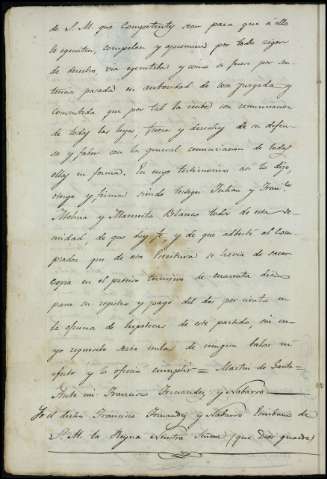 de S. M. que competentes sean para que a ello
le egecuten, compelan y apremien por todo rigor
de derecho, via egecutiba y como si fuera por sen-
tencia pasada en autoridad de cosa juzgada y
consentida que por tal la recibe con renunciacion
de todas las leyes, fueros y derechos de su defen-
sa y fabor con la general renunciacion de todas
ellas en forma. En cuyo testimonio asi lo dijo,
otorga y firma siendo testigos Julian y Franco
Molina y Blanco todos de esta ve-
cindad, de que doy fe, y de que alberti al Com-
prador que de esa Escritura se havia de sacar
copia en el preciso termino de cuarenta dias
para su registro y pago del dos por ciento en
la oficina de hipotecas de este partido, sin cu-
yo requisito sera nula de ningun balor ni
efecto y lo ofrecio cumplir = Martin de
Ante mi Francisco Fernandez y Nabarro
Yo el dicho Francisco Fernandez y Nabarro Escribano de
S. M. la Reyna nuestra Señora (que Dios guarde)